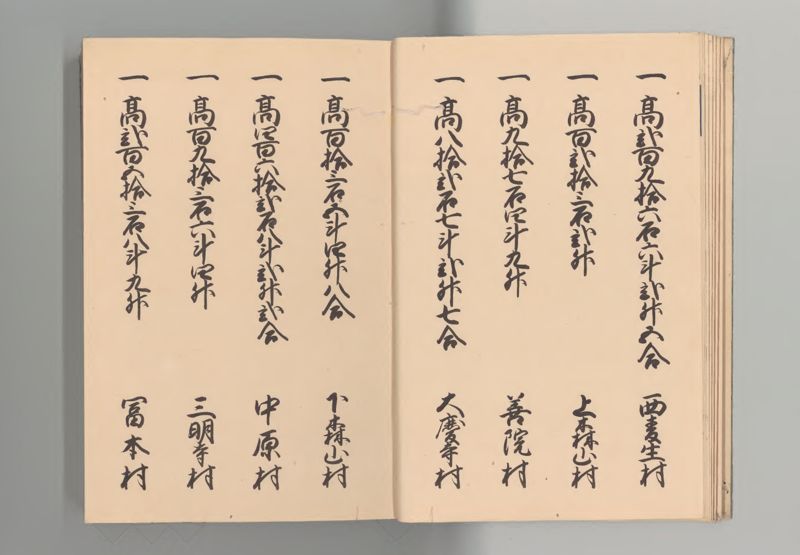 一 高弐百九拾六石六斗弐升五合 西麦生村
一 高百弐拾三石弐升 上森山村
一 高九拾七石四斗九升 善院村
一 高八拾弐石七斗弐升七合 大慶寺村
一 高百拾三石五斗四升八合 下森山村
一 高四百六拾弐石八斗弐升弐合 中原村
一 高百九拾三石六斗四升 三明寺村
一 高弐百五拾三石八斗九升 冨本村